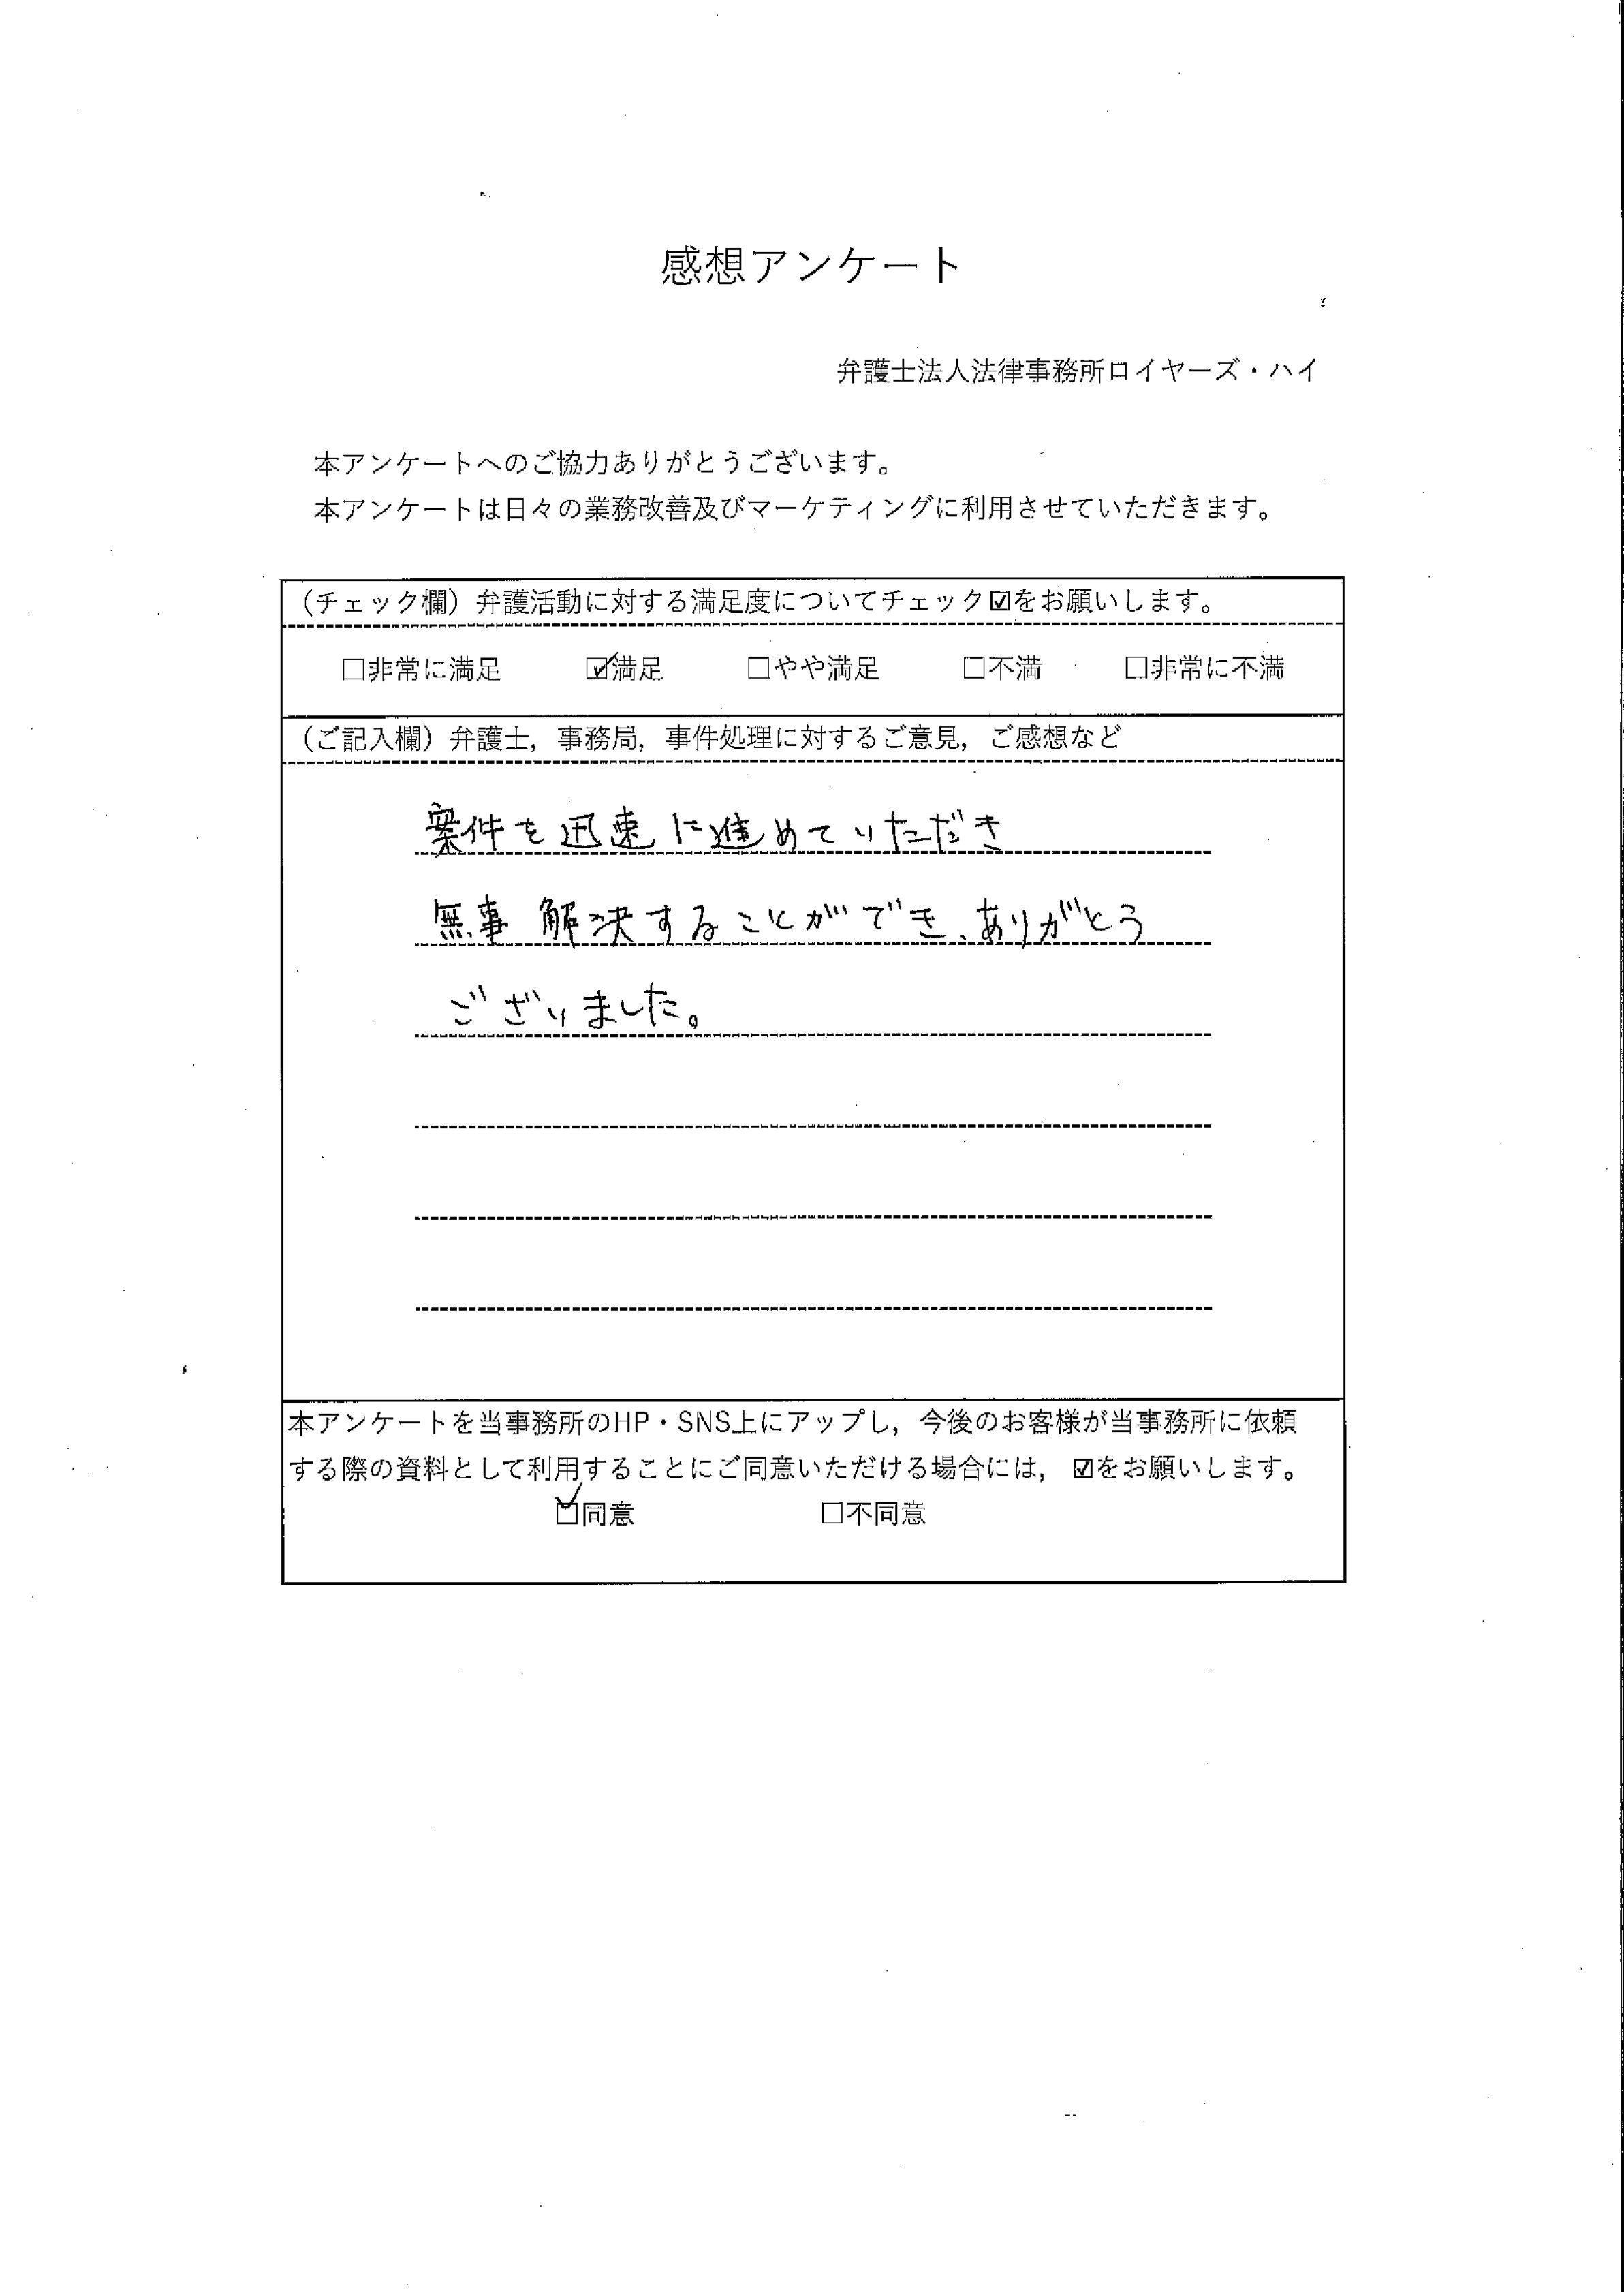 感想アンケート
弁護士法人法律事務所ロイヤーズ・ハイ
本アンケートへのご協力ありがとうございます。
本アンケートは日々の業務改善及びマーケティングに利用させていただきます。
（チェック欄）弁護活動に対する満足度についてチェック☑をお願いします。
□非常に満足 ☑満足 □やや満足 □不満 □非常に不満
（ご記入欄）弁護士，事務局，事件処理に対するご意見，ご感想など
案件を迅速に進めていただき
無事解決することができ、ありがとう
ございました。
本アンケートを当事務所のHP・SNS上にアップし，今後のお客様が当事務所に依頼
する際の資料として利用することにご同意いただける場合には，☑をお願いします。
☑同意 □不同意